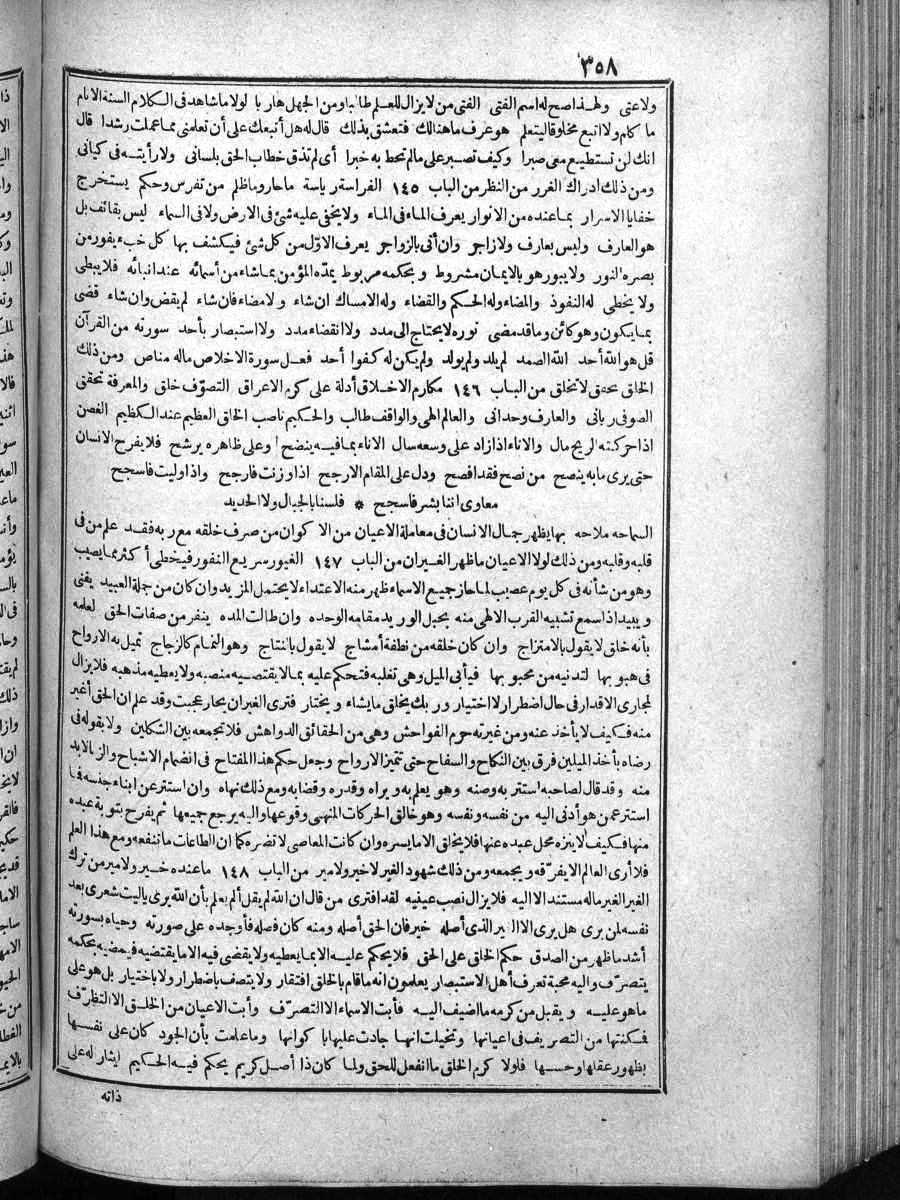 ٣٥٨
ولاعتى ولهذا صح له اسم الفتى الفتى من لايزال للعلم طالبا ومن الجهل هاربا لولا ما شاهد فى الكلام السنة الانام
ما كلم ولا اتبع مخلوقا ليتعلم هو عرف ما هنالك فتعشق بذلك قال له هل أتبعك على أن تعلمنى مما علمت رشدا قال
انك لن تستطيع معى صبرا وكيف تصبر على مالم تحط به خبرا أى لم تذق خطاب الحق بلسانى ولا رأيته فى كيانى
ومن ذلك ادراك الغرر من النظر من الباب ١٤٥ الفراسة رياسة ما حار وما ظلم من تفرس وحكم يستخرج
خفايا الاسرار بما عنده من الانوار يعرف الماء فى الماء ولا يخفى عليه شئ فى الارض ولا فى السماء ليس بقائف بل
هو العارف وليس بعارف ولا زاجر وان أتى بالزواجر يعرف الاوّل من كل شئ فيكشف بها كل خبء يفور من
بصره النور ولا يبور هو بالايمان مشروط وبحكمه مربوط يمدّه المؤمن بما شاء من أسمائه عند انبائه فلا يبطى
ولا يخطى له النفوذ والمضاء وله الحكم والقضاء وله الامساك ان شاء ولا مضاء فان شاء لم يقض وان شاء قضى
بما يكون وهو كائن وما قد مضى نوره لا يحتاج الى مدد ولا انقضاء مدد ولا استبصار بأحد سورته من القرآن
قل هو الله أحد الله الصمد لم يلد ولم يولد ولم يكن له كفوا أحد فعل سورة الاخلاص ماله مناص ومن ذلك
الخلق تحقق لا تخلق من الباب ١٤٦ مكارم الاخلاق أدلة على كرم الاعراق التصوّف خلق والمعرفة تحقق
الصوفى ربانى والعارف وحدانى والعالم الهى والواقف طالب والحكيم ناصب الخلق العظيم عند الكظيم الغصن
اذا حركته الريح مال والاناء اذا زاد على وسعه سال الاناء بما فيه ينضح وعلى ظاهره يرشح فلا يفرح الانسان
حتى يرى ما به ينصح من نصح فقد افصح ودل على المقام الارجح اذا وزنت فارجح واذا وليت فاسجح
معاوى اننا بشر فاسجح * فلسنا بالجبال ولا الحديد
السماحه ملاحه بها يظهر جمال الانسان فى معاملة الاعيان من الا كوان من صرف خلقه مع ربه فقد علم من فى
قلبه وقلبه ومن ذلك لولا الاعيان ما ظهر الغيران من الباب ١٤٧ الغيور سريع النفور فيخطى أكثر مما يصيب
وهو من شأنه فى كل يوم عصيب لما حاز جميع الاسماء ظهر منه الاعتداء لا يحتمل المزيد وان كان من جملة العبيد يفنى
ويبيد اذا سمع تشبيه القرب الالهى منه بحبل الوريد مقامه الوحده وان طالت المده ينفر من صفات الحق لعلمه
بأنه خلق لا يقول بالامتزاج وان كان خلقه من نطفة أمشاج لا يقول بالنتاج وهو التمام كالزجاج تميل به الارواح
فى هبو بها لتدنيه من محبو بها فيأبى الميل وهى تغلبه فتحكم عليه بما لا يقتضيه منصبه ولا يعطيه مذهبه فلا يزال
لمجارى الاقدار فى حال اضطرار لا اختيار وربك يخلق ما يشاء ويختار فترى الغيران بحار عجبت وقد علم ان الحق أغير
منه فكيف لا يأخذ عنه ومن غيرته حرم الفواحش وهى من الحقائق الدواهش فلا تجمعه بين الشكلين ولا بقوله فى
رضاه بأخذ الميلين فرق بين النكاح والسفاح حتى تتميز الارواح وجعل حكم هذا المفتاح فى انضمام الاشباح والزنا لابد
منه وقد قال لصاحبه استتر به وصنه وهو يعلم به ويراه وقدره وقضا به ومع ذلك نهاه وان استتر عن ابناء جنسه فما
استتر عمن هو أدنى اليه من نفسه ونفسه وهو خالق الحركات المنهى وقوعها واليه يرجع جميعها ثم يفرح بتوبة عبده
منها فكيف لا ينزه محل عبده عنها فلا يخلق الا ما يسره وان كانت المعاصى لا تضره كما ان الطاعات ما تنفعه ومع هذا العلم
فلا أرى العالم الا يفرّقه ويجمعه ومن ذلك شهود الغير لا خير ولا مير من الباب ١٤٨ ما عنده خير ولا مير من ترك
الغير الغير ماله مستند الا اليه فلا يزال نصب عينيه لقد افترى من قال ان الله لم يقل ألم يعلم بأن الله يرى ياليت شعرى بعد
نفسه لمن يرى هل يرى الا الخير الذى أصله خير فان الحق أصله ومنه كان فصله فأوجده على صورته وحياه بسورته
أشد ما ظهر من الصدق حكم الخلق على الحق فلا يحكم عليه الا بما يعطيه ولا يقضى فيه الا ما يقتضيه فيمضيه بحكمه
يتصرّف واليه محبة تعرف أهل الاستبصار يعلمون انه ما قام بالخلق افتقار ولا يتصف باضطرار ولا باختيار بل هو على
ما هو عليه ويقبل من كرمه ما اضيف اليه فأبت الاسماء الا التصرّف وأبت الاعيان من الخلق الا التظرّف
فمكنتها من التصريف فى اعيانها وتخيلت انها جادت عليها باكوانها وما علمت بأن الجود كان على نفسها
بظهور عقلها وحسها فلولا كرم الخلق ما انفعل للحق ولما كان ذا أصل كريم يحكم فيه الحكيم ايثار له على
ذاته